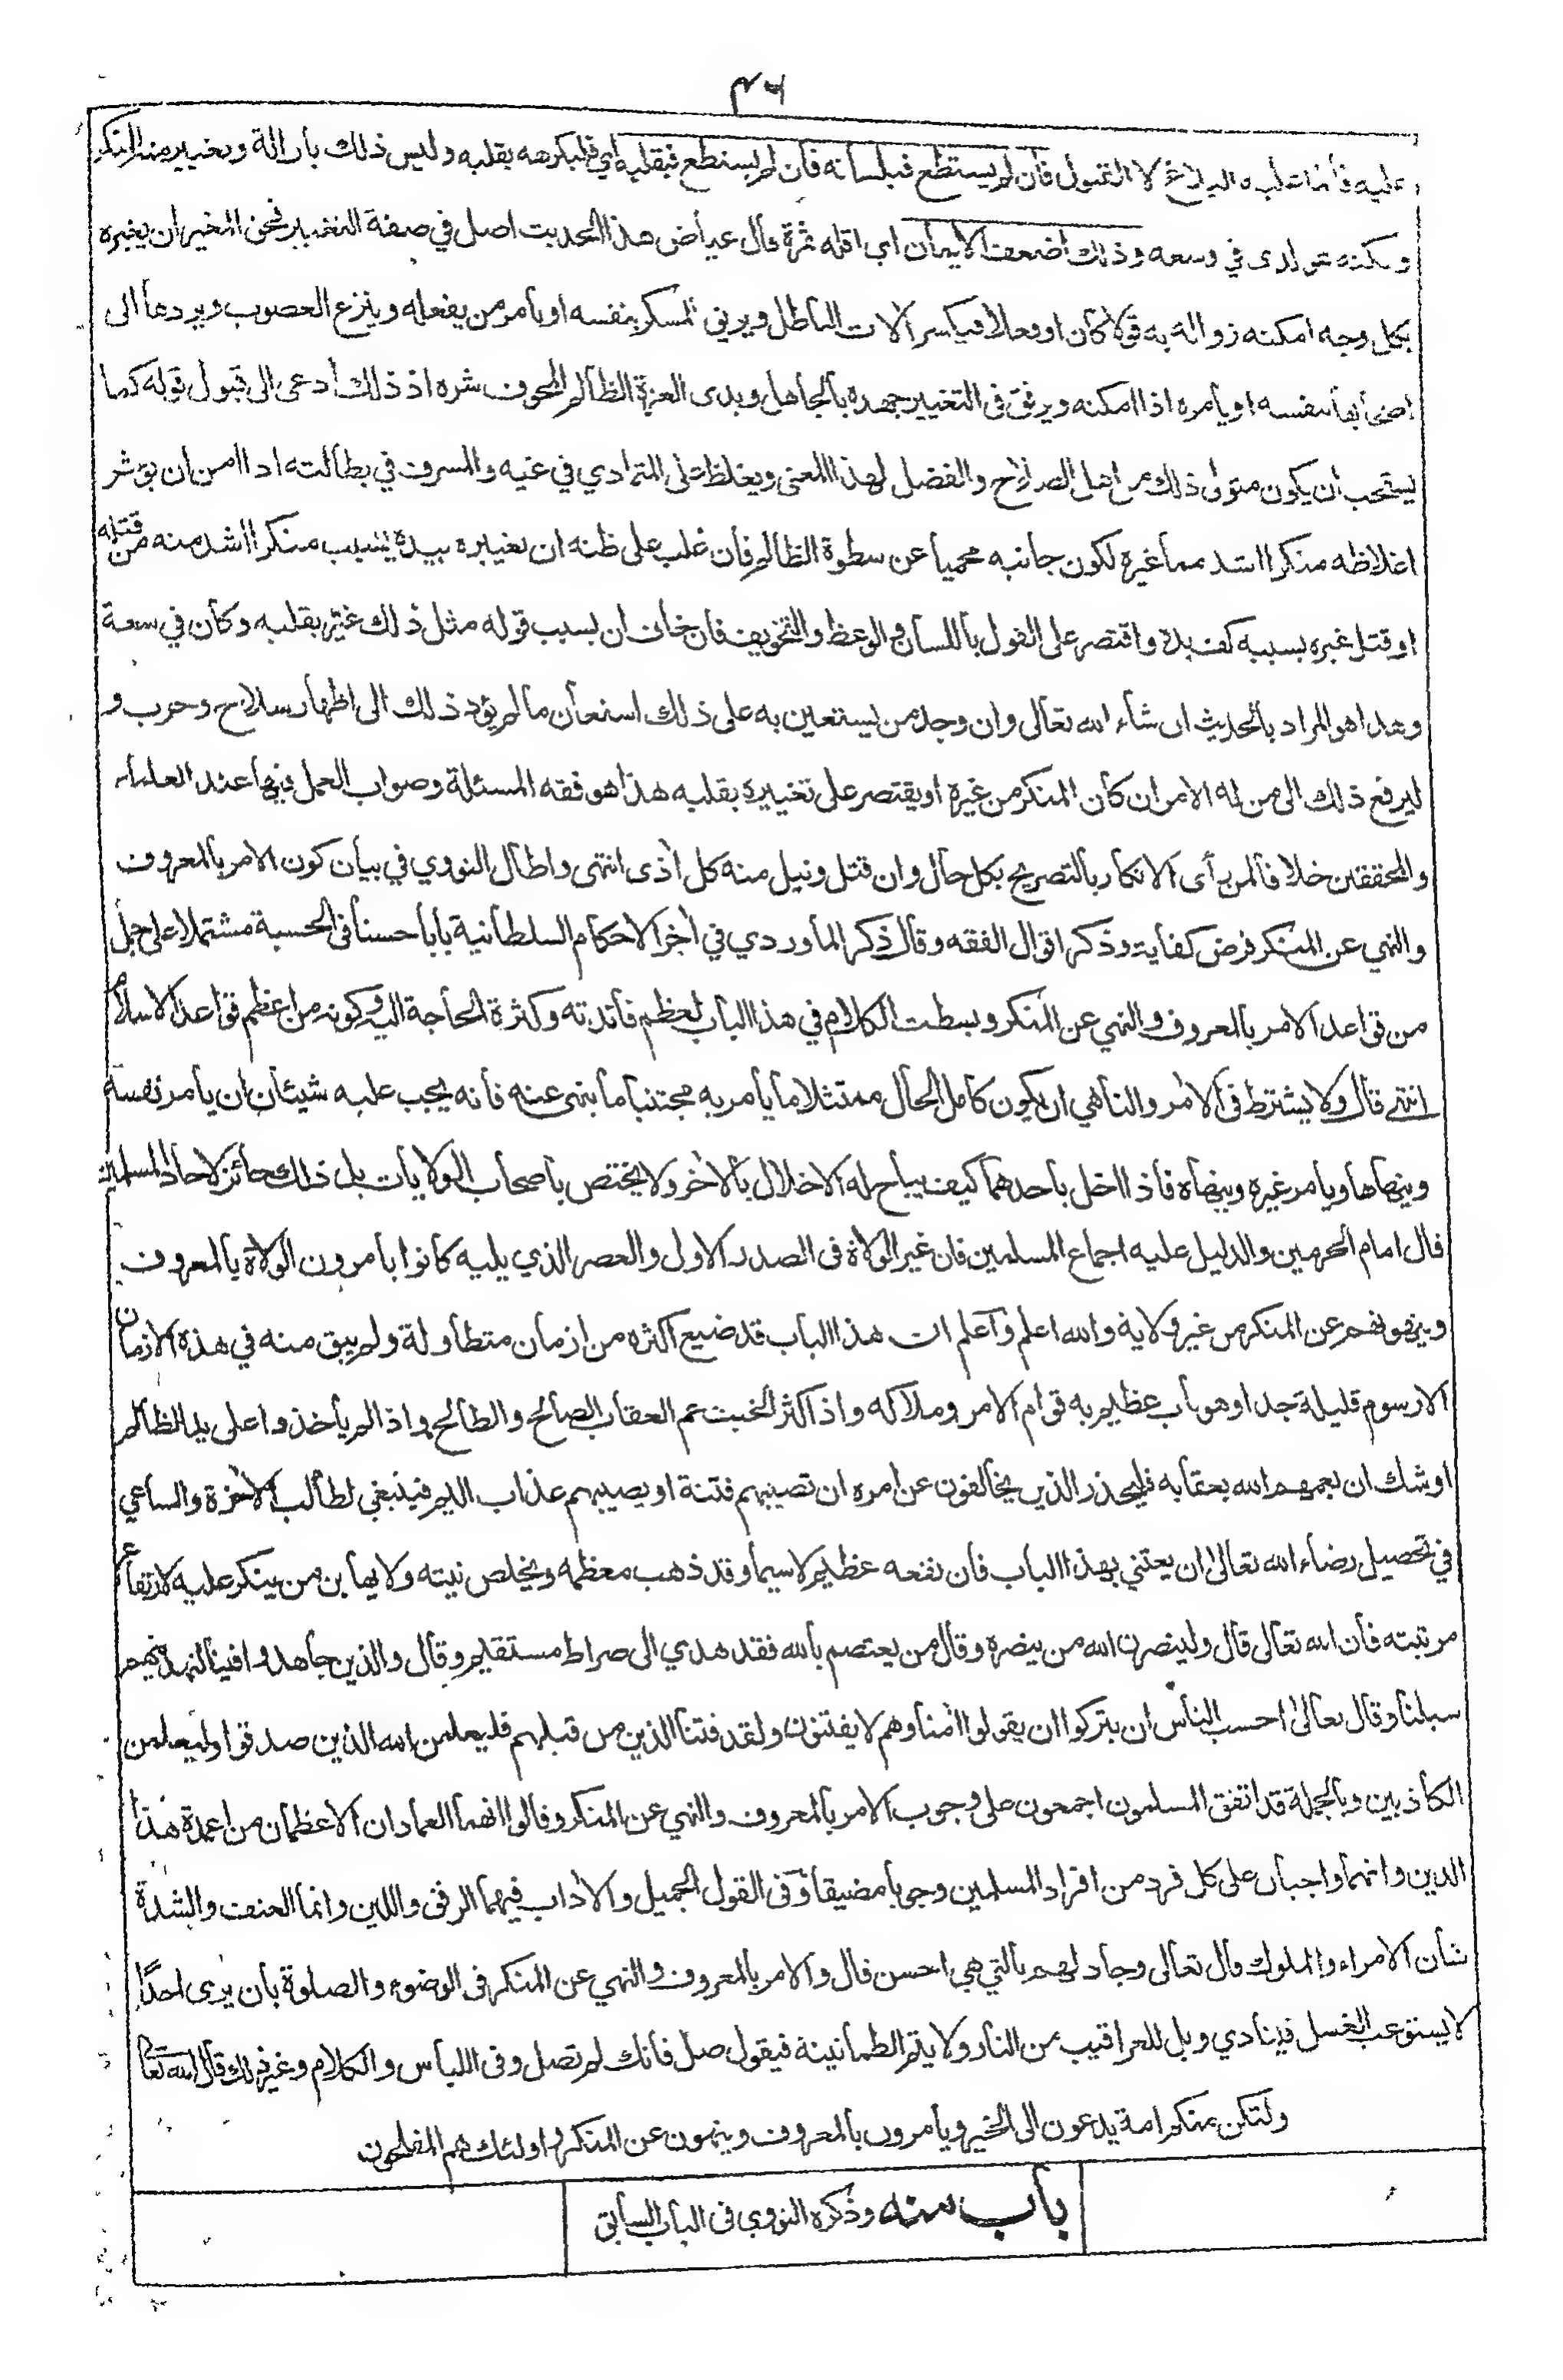 ٤٦
عليه فأنما عليه البلاغ لا القبول فأن لم يستطع فبلسأنه فأن لم يستطع فبقلبه أي فليكرهه بقلبه وليس ذلك بأزالة وتغيير منه المنكر
ولكنه هو الذى في وسعه وذلك أضعف الايمأن أي اقله ثمرة قأل عيأض هذا الحديث اصل في صفة التغيير فحق المغير ان يغيره
بكل وجه امكنه زواله به قولا كأن او فعلا فيكسر آلات البأطل ويريق المسكر بنفسه او يأمر من يفعله وينزع الغصوب ويردهأ الى
اصحأبهأ بنفسه او يأمره اذا امكنه ويرفق فى التغيير جهده بألجأهل وبذى العزة الظألم المخوف شره اذ ذلك أدعى الى قبول قوله كما
يستحب أن يكون متولى ذلك من اهل الصلاح والفضل لهذا المعنى ويغلظ على المتمأدي في غيه والمسرف في بطألته اذا امن ان يؤثر
اغلاظه منكرا اشد ممأ غيره لكون جأنبه محميأ عن سطوة الظألم فأن غلب على ظنه ان تغييره بيده يسبب منكرا اشد منه من قتله
او قتل غيره بسببه كف يده واقتصر على القول بأللسأن والوعظ والتخويف فأن خأف ان يسبب قوله مثل ذلك غير بقلبه وكأن في سعة
وهذا هو المراد بألحديث ان شأء الله تعألى وان وجد من يستعين به على ذلك استعأن مألم يؤد ذلك الى اظهأر سلاح وحرب و
ليرفع ذلك الى من له الامر ان كأن المنكر من غيره او يقتصر على تغييره بقلبه هذا هو فقه المسئلة وصواب العمل فيهأ عند العلمأء
والمحققين خلافألمن رأى الانكأر بألتصريح بكل حأل وان قتل ونيل منه كل أذى انتهى واطأل النووي في بيأن كون الامر بألمعروف
والنهي عن المنكر فرض كفأية وذكر اقوال الفقه وقأل ذكر المأوردي في أخر الاحكأم السلطأنية بأبأ حسنأ فى الحسبة مشتملا على جمل
من قواعد الامر بألمعروف والنهي عن المنكر وبسطت الكلام في هذا البأب لعظم فأئدته وكثرة الحأجة اليه وكونه من اعظم قواعد الاسلام
انتهى قأل ولا يشترط فى الأمر والنأهي ان يكون كأمل الحأل ممتثلا مأ يأمر به مجتنبأ مأ ينهى عنه فأنه يجب عليه شيئأن ان يأمر نفسه
وينهأهأ ويأمر غيره وينهأه فأذا اخل بأحدهمأ كيف يبأح له الاخلال بألأخر ولا يختص بأصحأب الولايأت بل ذلك جأئز لاحأد المسلمين
قال امام الحرمين والدليل عليه اجماع المسلمين فان غير الولاة فى الصدر الاول والعصر الذي يليه كانوا يأمرون الولاة بألمعروف
وينهونهم عن المنكر من غير ولاية والله اعلم وآعلم ان هذا البأب قد ضيع اكثره من ازمأن متطأولة ولم يبق منه في هذه الازمأن
الا رسوم قليلة جدا وهو بأب عظيم به قوام الامر وملاكه واذا كثر الخبث عم العقأب الصألح والطألح واذا لم يأخذوا على يد الظألم
اوشك ان يعمهم الله بعقأبه فليحذر الذين يخألفون عن امره ان تصيبهم فتنة او يصيبهم عذاب اليم فينبغي لطألب الأخرة والسأعي
في تحصيل رضأء الله تعألى ان يعتني بهذا البأب فأن نفعه عظيم لاسيمأ وقد ذهب معظمه ويخلص نيته ولا يهأبن من ينكر عليه لارتفأع
مرتبته فأن الله تعألى قأل ولينصرن الله من ينصره وقأل من يعتصم بألله فقد هدي الى صراط مستقيم وقأل والذين جأهدوا فينا لنهدينهم
سبلنأ وقأل تعألى احسب النأس ان يتركوا ان يقولوا أمنأ وهم لا يفتنون ولقد فتنأ الذين من قبلهم فليعلمن الله الذين صدقوا وليعلمن
الكأذبين وبألجملة قد اتفق المسلمون اجمعون على وجوب الامر بألمعروف والنهي عن المنكر وقألوا انهمأ العمأدان الاعظمأن من اعمدة هذا
الدين وانهمأ واجبأن على كل فرد من افراد المسلمين وجوبأ مضيقأ وفى القول الجميل والأداب فيهمأ الرفق واللين وانمأ العنف والشدة
شأن الامراء والملوك قأل تعألى وجأدلهم بألتي هي احسن قأل والامر بألمعروف والنهي عن المنكر فى الوضوء والصلوة بأن يرى احدًا
لا يستوعب الغسل فينأدي ويل للعراقيب من النأر ولا يتم الطمأنينة فيقول صل فأنك لم تصل وفى اللبأس والكلام وغير ذلك قأل الله تعألى
ولتكن منكم امة يدعون الى الخير ويأمرون بألمعروف وينهون عن المنكر واولئك هم المفلحون
بأب منه وذكره النووي فى البأب السأبق